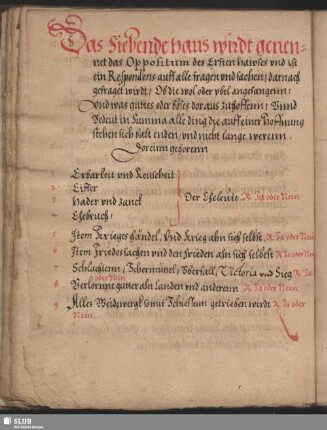 Das Siebende haus wirdt genen-
net das Oppositum des Ersten hauses vnd ist
ein Respondens auff alle fragen vnd sachen; darnach
gefraget wirdt; Ob die wol oder vbel angefangenn;
Vnnd was guttes oder böses daraus zuhoffenn; Vnnd
Bedeut in Summa alle ding die auff einer hoffnung
stehen sich bald enden, vnd nicht lange werenn.
Dorein gehorenn
1 Erbarkeit vnd Keuscheit
2 Eiffer
3 Hader vnd Zanck
4 Ehebruch
Der Eheleute R. Ja oder Nein
5 Item Krieges händel, Vnd Krieg ahn sich selbst R. Ja oder Nein
6 Item Friedes sachen vnd den frieden ahn sich selbst R. Ja oder Nein
7 Schlachtenn, Schermutzel, Vberfall, Victoria vnd Sieg R. Ja
oder Nein
8 Verlorenn gutter ahn Landen vnd anderenn R. Ja oder Nein
9 Alles Weidwergk so mit Schiessenn getrieben wirdt R. Ja oder
Nein
SLUB
Wir führen Wissen.